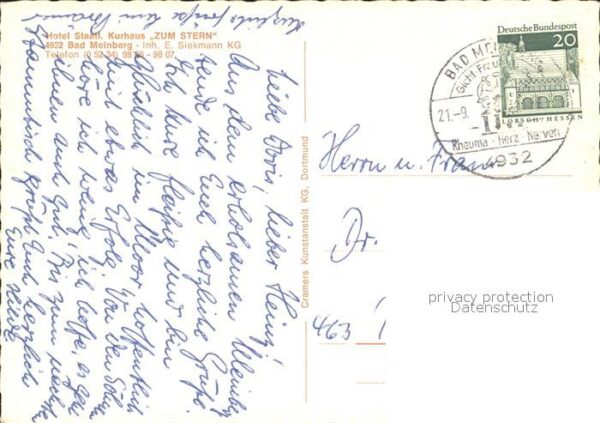 Herzliche Grüße
Hotel Staatl. Kurhaus „ZUM STERN"
4932 Bad Meinberg - Inh. E. Siekmann KG
Telefon (0 52 34) 98 06 - 98 07
Liebe Doris, lieber Heinz!
Aus dem erholsamen Meinberg
sende ich Euch herzliche Grüße.
Ich kure fleißig und bin
glücklich im Moor, hoffentlich
mit etwas Erfolg. Von den Söhnen
höre ich wenig, ich hoffe, es geht
ihnen auch gut. Bis zum nächsten
Stammtisch grüßt Euch herzlich
Eure
Cramers Kunstanstalt KG, Dortmund
Deutsche Bundespost
20
LORSCH · HESSEN
BAD MEINBERG
21.-9.
Rheuma - Herz - Nerven
4932
Herrn u. Frau
Dr.
463
privacy protection
Datenschutz